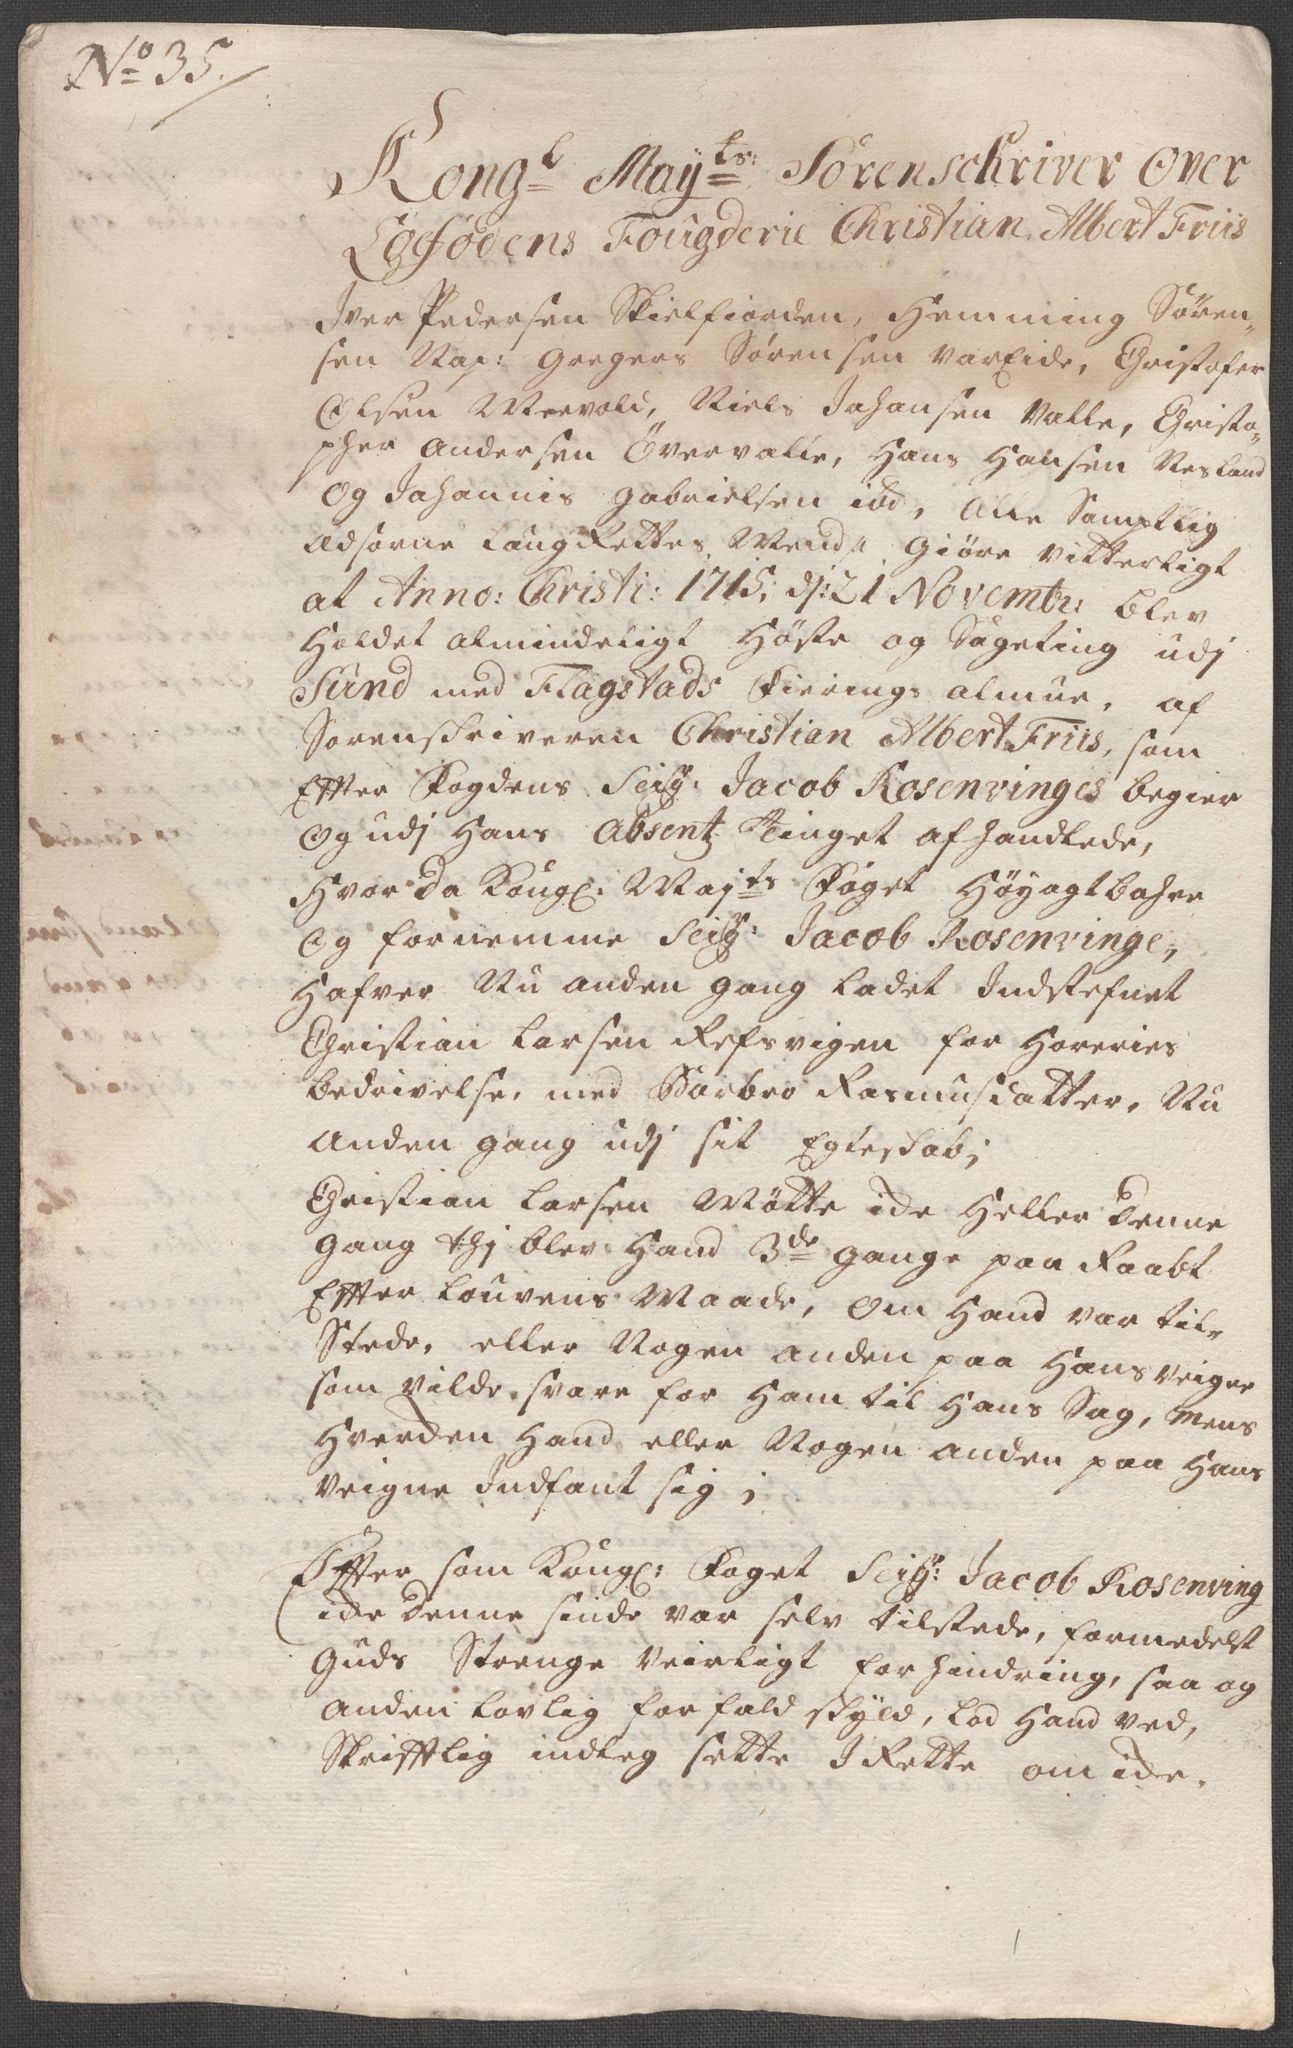 No 35.
Kongl Mayts: Sorenschriver over
Lofodens Fougderie Christian Albert Friis
Iver Pedersen Skielfiorden, Hemming Sören„
sen Nap: Gregers Sörensen Vareide, Christofer
Olsen Mærvold, Niels Johansen Valle, Christo„
pher Andersen Övervalle, Hans Hansen Nesland
og Johannis Gabrielsen ibd, Alle Samptlig
Adsorne Laug Rettes Mend: Giöre vitterligt
at Anno: Christi: 1715; dj: 21 Novembr: blev
Holdet almindeligt Höste og Sageting udj
Sund med Flagstads Fierings almue, af
Sorenskriveren Christian Albert Friis, som
Efter Fogdens Seigr: Jacob Rosenvinges begier
og udj Hans Absentz Tinget afhandlede,
Hvor da Kongl: Majts Foget Höyagtbahre
og fornemme Seigr: Jacob Rosenvinge,
Hafver Nu anden gang ladet Indstefnet
Christian Larsen Refsvigen for Horeries
bedrivelse, med Barbro Rasmusdatter, Nu
anden gang udj sit Egteskab;
Christian Larsen Mötte icke Heller denne
gang thj blev Hand 3de gange paa Raabt
Efter Louvens Maade, om Hand var til„
Stede, eller Nogen anden paa Hans veigne
som vilde svare for Ham til Hans Sag, mens
Hverden Hand eller Nogen anden paa Hans
veigne Indfant sig;
Efter som Kongl: Foget Seigr: Jacob Rosenving
icke denne sinde var selv tilstede, formedelst
Guds Strenge Veirligt forhindring, saa og
anden lovlig forfald skyld, lod Hand ved,
Skrifftlig indleg sette I Rette om icke.